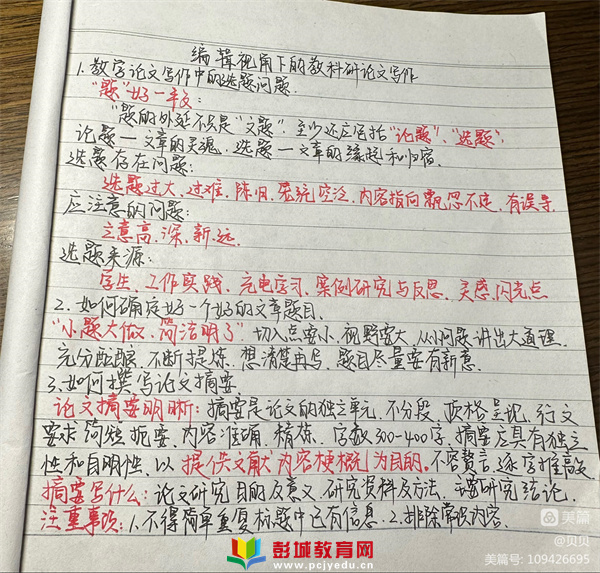 编辑视角下的教科研论文写作
1.教学论文写作中的选题问题.
"题"好一半文:
"题的外延不只是"文题",至少还应包括"论题"、"选题".
论题—文章的灵魂,选题—文章的缘起和归宿.
选题存在问题:
选题过大、过难、陈旧、笼统空泛、内容指向飘忽不定、有误导
应注意的问题:
立意高、深、新、远.
选题来源:
学生、工作实践、充电学习、案例研究与反思、灵感、闪光点
2.如何确定好一个好的文章题目.
"小题大做、简洁明了"切入点要小,视野要大,从小问题讲出大道理.
充分酝酿、不断提炼、想清楚再写,题目尽量要有新意.
3.如何撰写论文摘要.
论文摘要明晰:摘要是论文的独立单元,不分段、顶格呈现,行文
要求简短扼要、内容准确、精炼、字数300-400字,摘要应具有独立
性和自明性,以提供文献内容梗概为目的。不容赘言,逐字推敲
摘要写什么:论文研究目的及意义、研究资料及方法、主要研究结论.
注重事项:1.不得简单重复标题中已有信息.2.排除常识内容.
美篇
@贝贝
美篇号: 109426695
彭城教育网
www.pcjyedu.cn